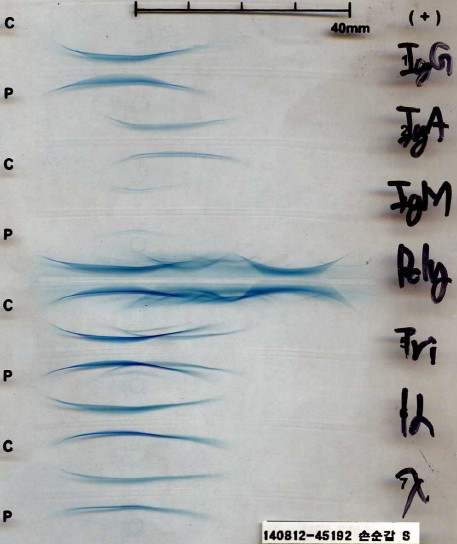 C
(+)
40mm
IgG
P
IgA
C
IgM
P
Poly
C
Tri
P
C
λ
P
140812-45192 손순갑 S